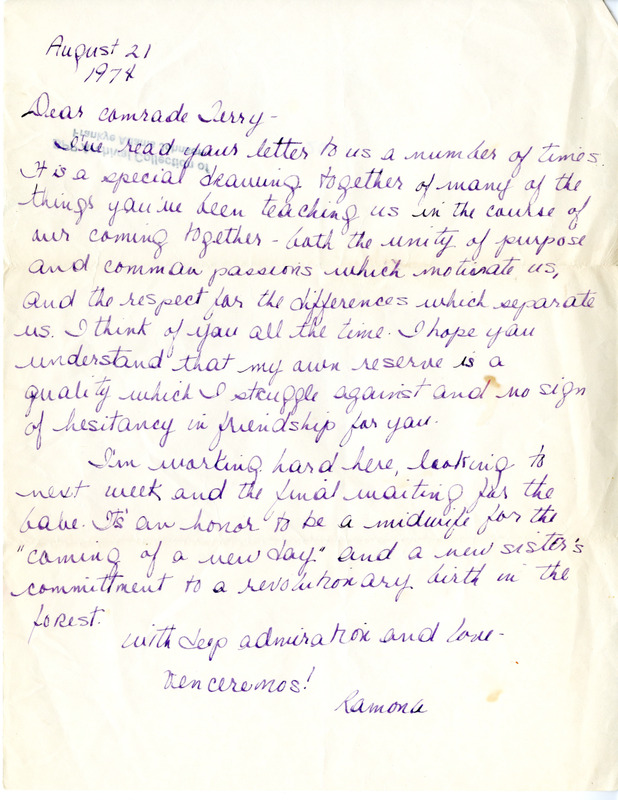 August 21
1974
Dear comrade Terry-
I've read your letter to us a number of times.
It is a special drawing together of many of the
things you've been teaching us in the course of
our coming together - both the unity of purpose
and common passions which motivate us,
and the respect for the differences which separate
us. I think of you all the time. I hope you
understand that my own reserve is a
quality which I struggle against and no sign
of hesitancy in friendship for you.
I'm working hard here, looking to
next week and the final waiting for the
babe. Its' an honor to be a midwife for the
"coming of a new day" and a new sister's
committment to a revolutionary birth in the
forest.
with deep admiration and love-
Venceremos!
Ramona